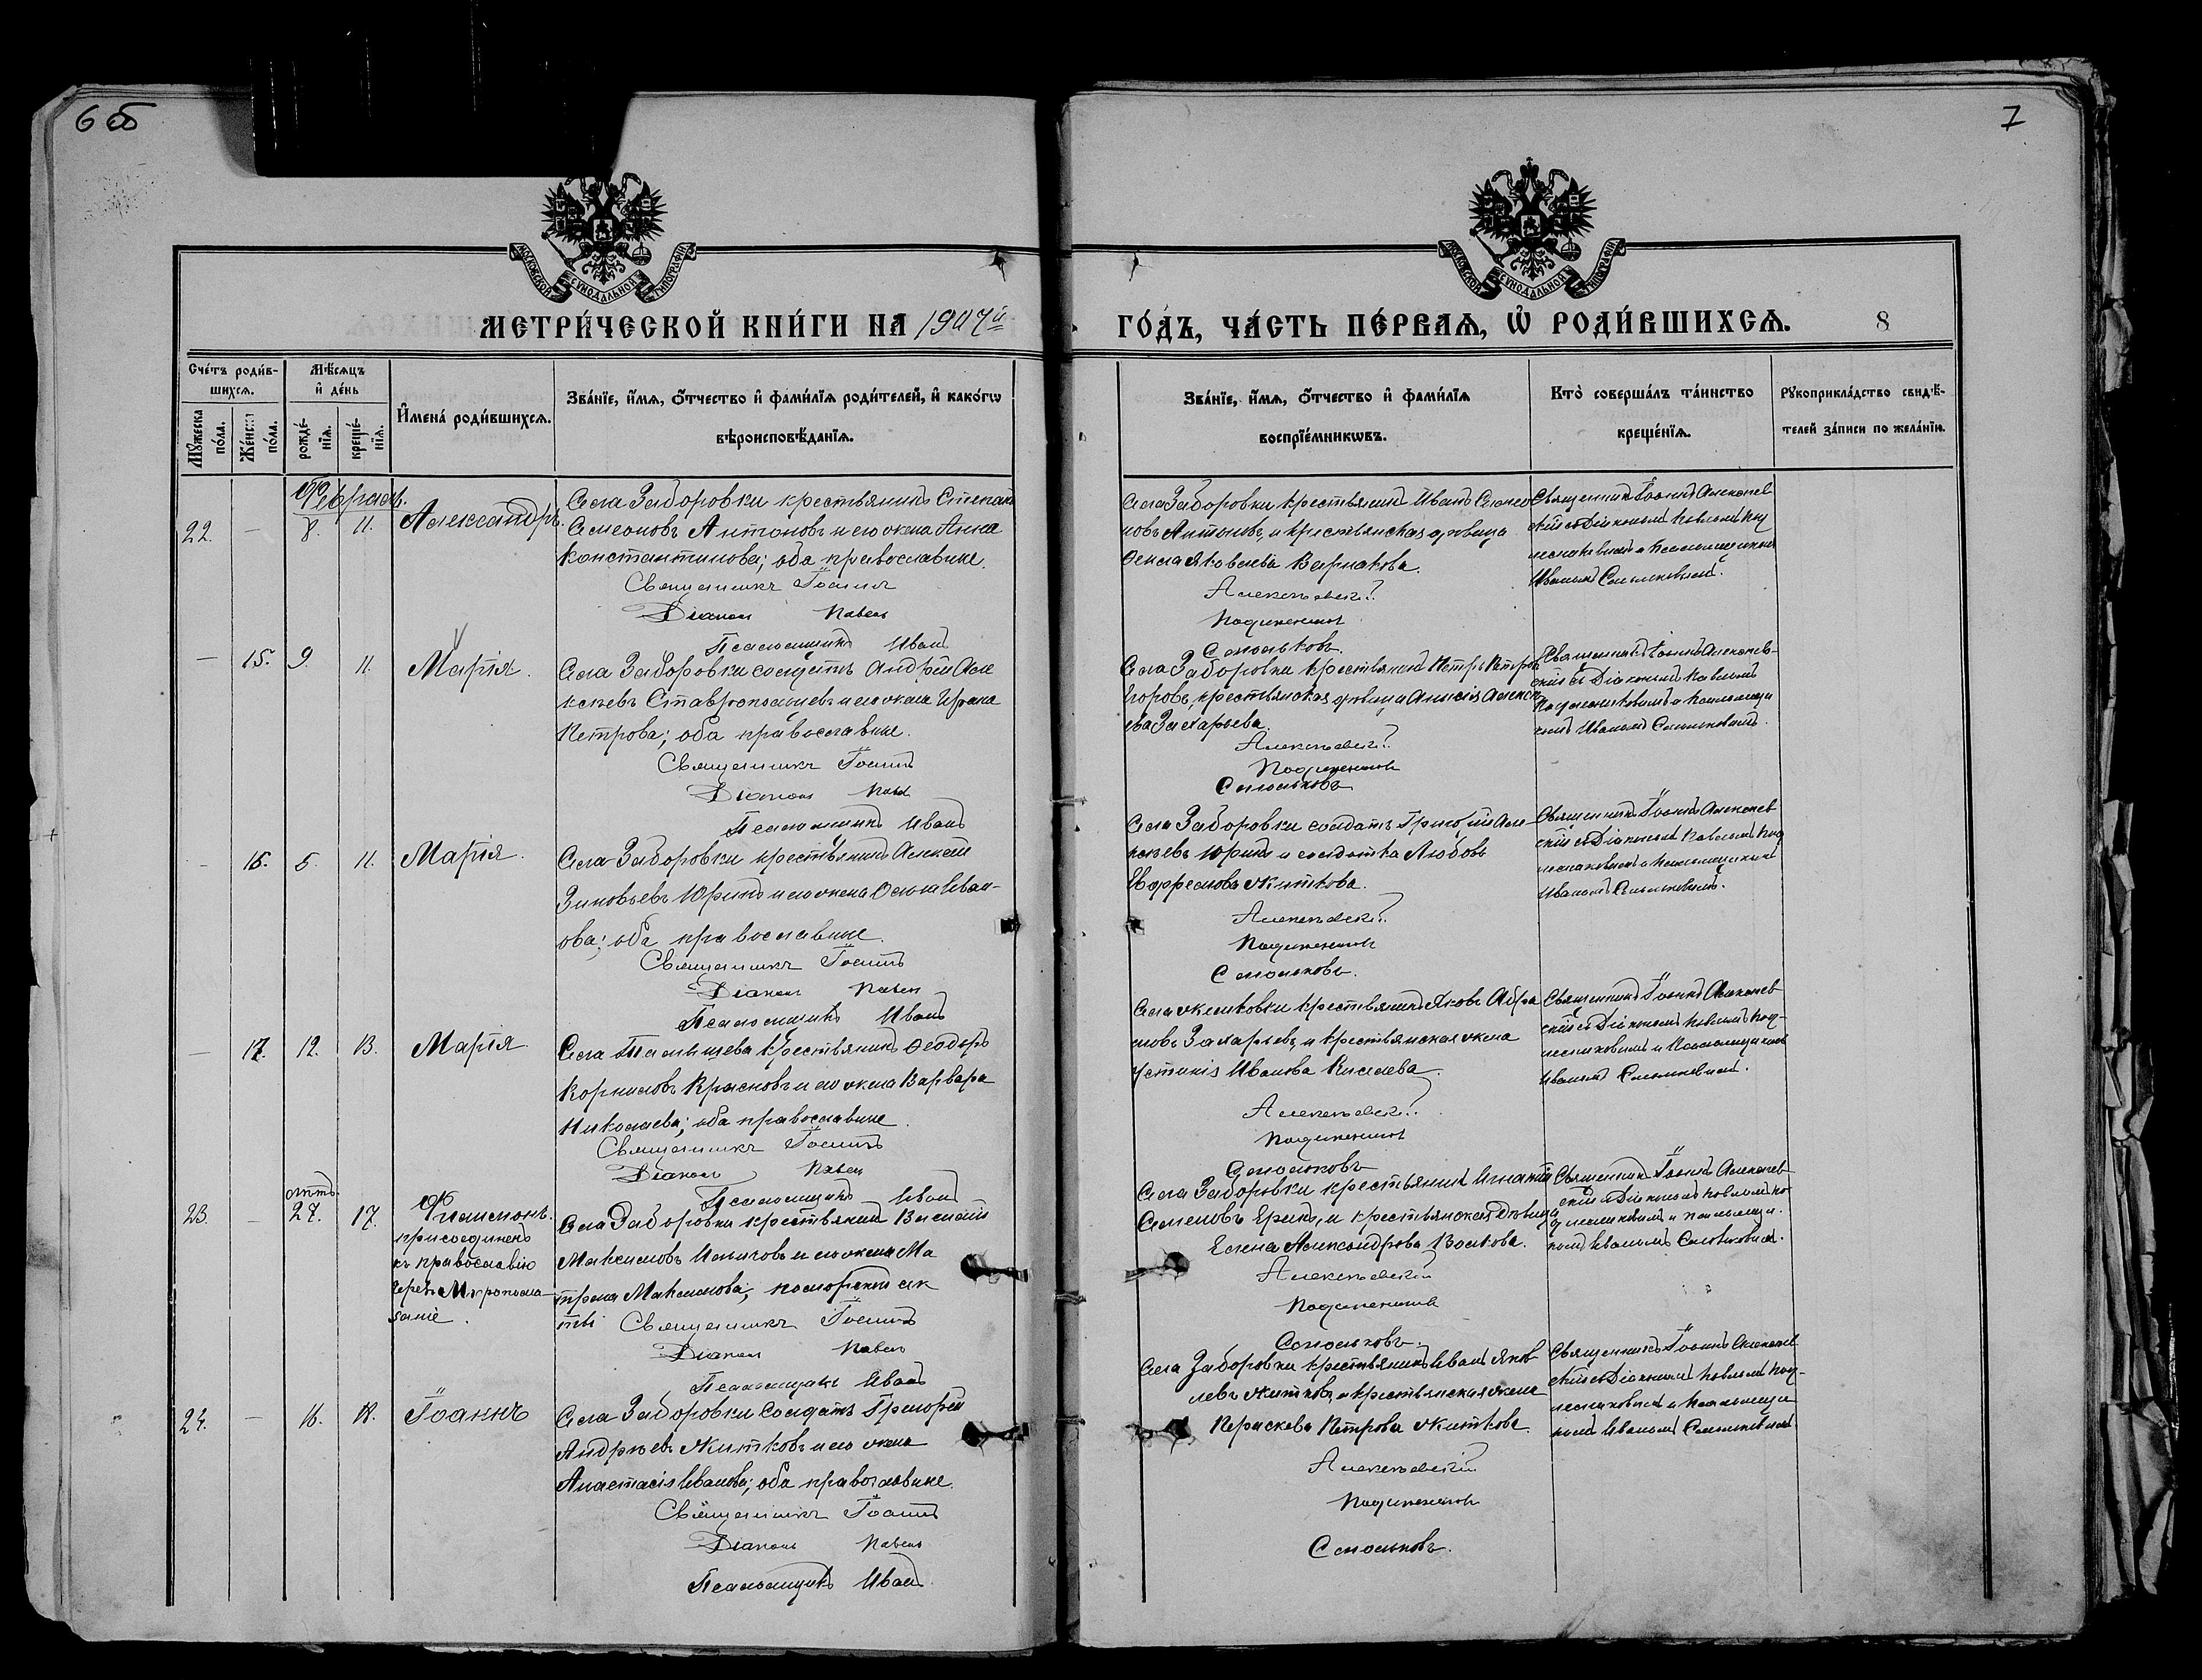 6 об
7
МОСКОВСКОЙ СУНОДАЛЬНОЙ ТИПОГРАФІИ
МОСКОВСКОЙ СУНОДАЛЬНОЙ ТИПОГРАФІИ
МЕТРИ́ЧЕСКОЙ КНИ́ГИ НА 1907й
ГО́ДЪ, ЧА́СТЬ ПЕ́РВАЯ, Ѡ҆ РОДИ́ВШИХСЯ.
8
Сче́тъ роди́в-
шихся.
Мѣ́сяцъ
и҆ де́нь
Мꙋ́жеска
по́ла.
Же́нска
по́ла.
рожде́-
нїя.
креще́-
нїя.
И҆мена̀ роди́вшихся.
Зва́нїе, и҆́мя, ѻ҆́тчество и҆ фами́лїя роди́телей, и҆ како́гѡ
вѣроисповѣ́данїя.
Зва́нїе, и҆́мя, ѻ҆́тчество и҆ фами́лїя
воспрїе́мникѡвъ.
Кто̀ соверша́лъ та́инство
креще́нїя.
Рꙋкоприкла́дство свидѣ́-
телей за́писи по жела́нїю.
Февраль.
22. — 8. 11. Александръ.
Села Заборовки крестьянинъ Степанъ
Семеоновъ Антоновъ и его жена Анна
Константинова; оба православные.
Священникъ Іоаннъ
Діаконъ Павелъ
Псаломщикъ Иванъ
Села Заборовки крестьянинъ Иванъ Семео
новъ Антоновъ и крестьянская
Яковлева
Алексѣевскій
Подлесновъ
Смольковъ
Священникъ Іоаннъ Алексѣев
скій съ Діакономъ Павломъ
и Псаломщикомъ
Иваномъ
— 15. 9. 11. Марія.
Села Заборовки солдатъ Андрей Але
ксѣевъ Ставропольцевъ и его жена Ирина
Петрова; оба православные.
Священникъ Іоаннъ
Діаконъ Павелъ
Псаломщикъ Иванъ
Села Заборовки крестьянинъ Петръ Петровъ
Егоровъ, крестьянская дѣвица Алексѣ
ева Захарьева
Алексѣевскій
Смольковъ
Священникъ Іоаннъ Алексѣев-
скій съ Діакономъ Павломъ
и Псаломщи
комъ Иваномъ
— 16. 5. 11. Марія.
Села Заборовки крестьянинъ Алексѣй
Зиновьевъ Юринъ и его жена Иван-
ова; оба православные.
Священникъ Іоаннъ
Діаконъ Павелъ
Псаломщикъ Иванъ
Села Заборовки солдатъ Григорій Але-
ксѣевъ Юринъ и солдатка Любовь
Евфремова Житкова.
Алексѣевскій
Смольковъ.
Священникъ Іоаннъ Алексѣев
скій съ Діакономъ Павломъ
и Псаломщикомъ
Иваномъ
— 17. 12. 13. Марія
Села крестьянинъ Ѳеодоръ
Корниловъ Красновъ и его жена Варвара
Николаева; оба православные.
Священникъ Іоаннъ
Діаконъ Павелъ
Псаломщикъ Иванъ
Села крестьянинъ Яковъ Абра
мовъ Захарьевъ, и крестьянская жена
Устинія Иванова Киселева.
Алексѣевскій
Смольковъ
Священникъ Іоаннъ Алексѣев-
скій съ Діакономъ Павломъ
и Псаломщикомъ
Иваномъ
23. — 27. 17. Филимонъ.
присоединенъ
къ православію
чрезъ Мѵропома-
заніе.
Села Заборовки крестьянинъ Василій
Максимовъ и его жена Ма
трена Максимова; поморской сек
ты Священникъ Іоаннъ
Діаконъ Павелъ
Псаломщикъ Иванъ
Села Заборовки крестьянинъ Игнатій
Семеновъ и крестьянская дѣвица
Елена Александрова Волкова.
Алексѣевскій
Смольковъ.
Священникъ Іоаннъ Алексѣев-
скій съ Діакономъ Павломъ
и псаломщи-
комъ Иваномъ
24. — 16. 18. Іоаннъ
Села Заборовки Солдатъ Григорій
Андреевъ Житковъ и его жена
Анастасія Иванова; оба православные.
Священникъ Іоаннъ
Діаконъ Павелъ
Псаломщикъ Иванъ
Села Заборовки крестьянинъ Иванъ Яков
левъ Житковъ, и крестьянская жена
Параскева Петрова Житкова
Алексѣевскій
Смольковъ.
Священникъ Іоаннъ Алексѣев
скій съ Діакономъ Павломъ
и Псаломщи
комъ Иваномъ